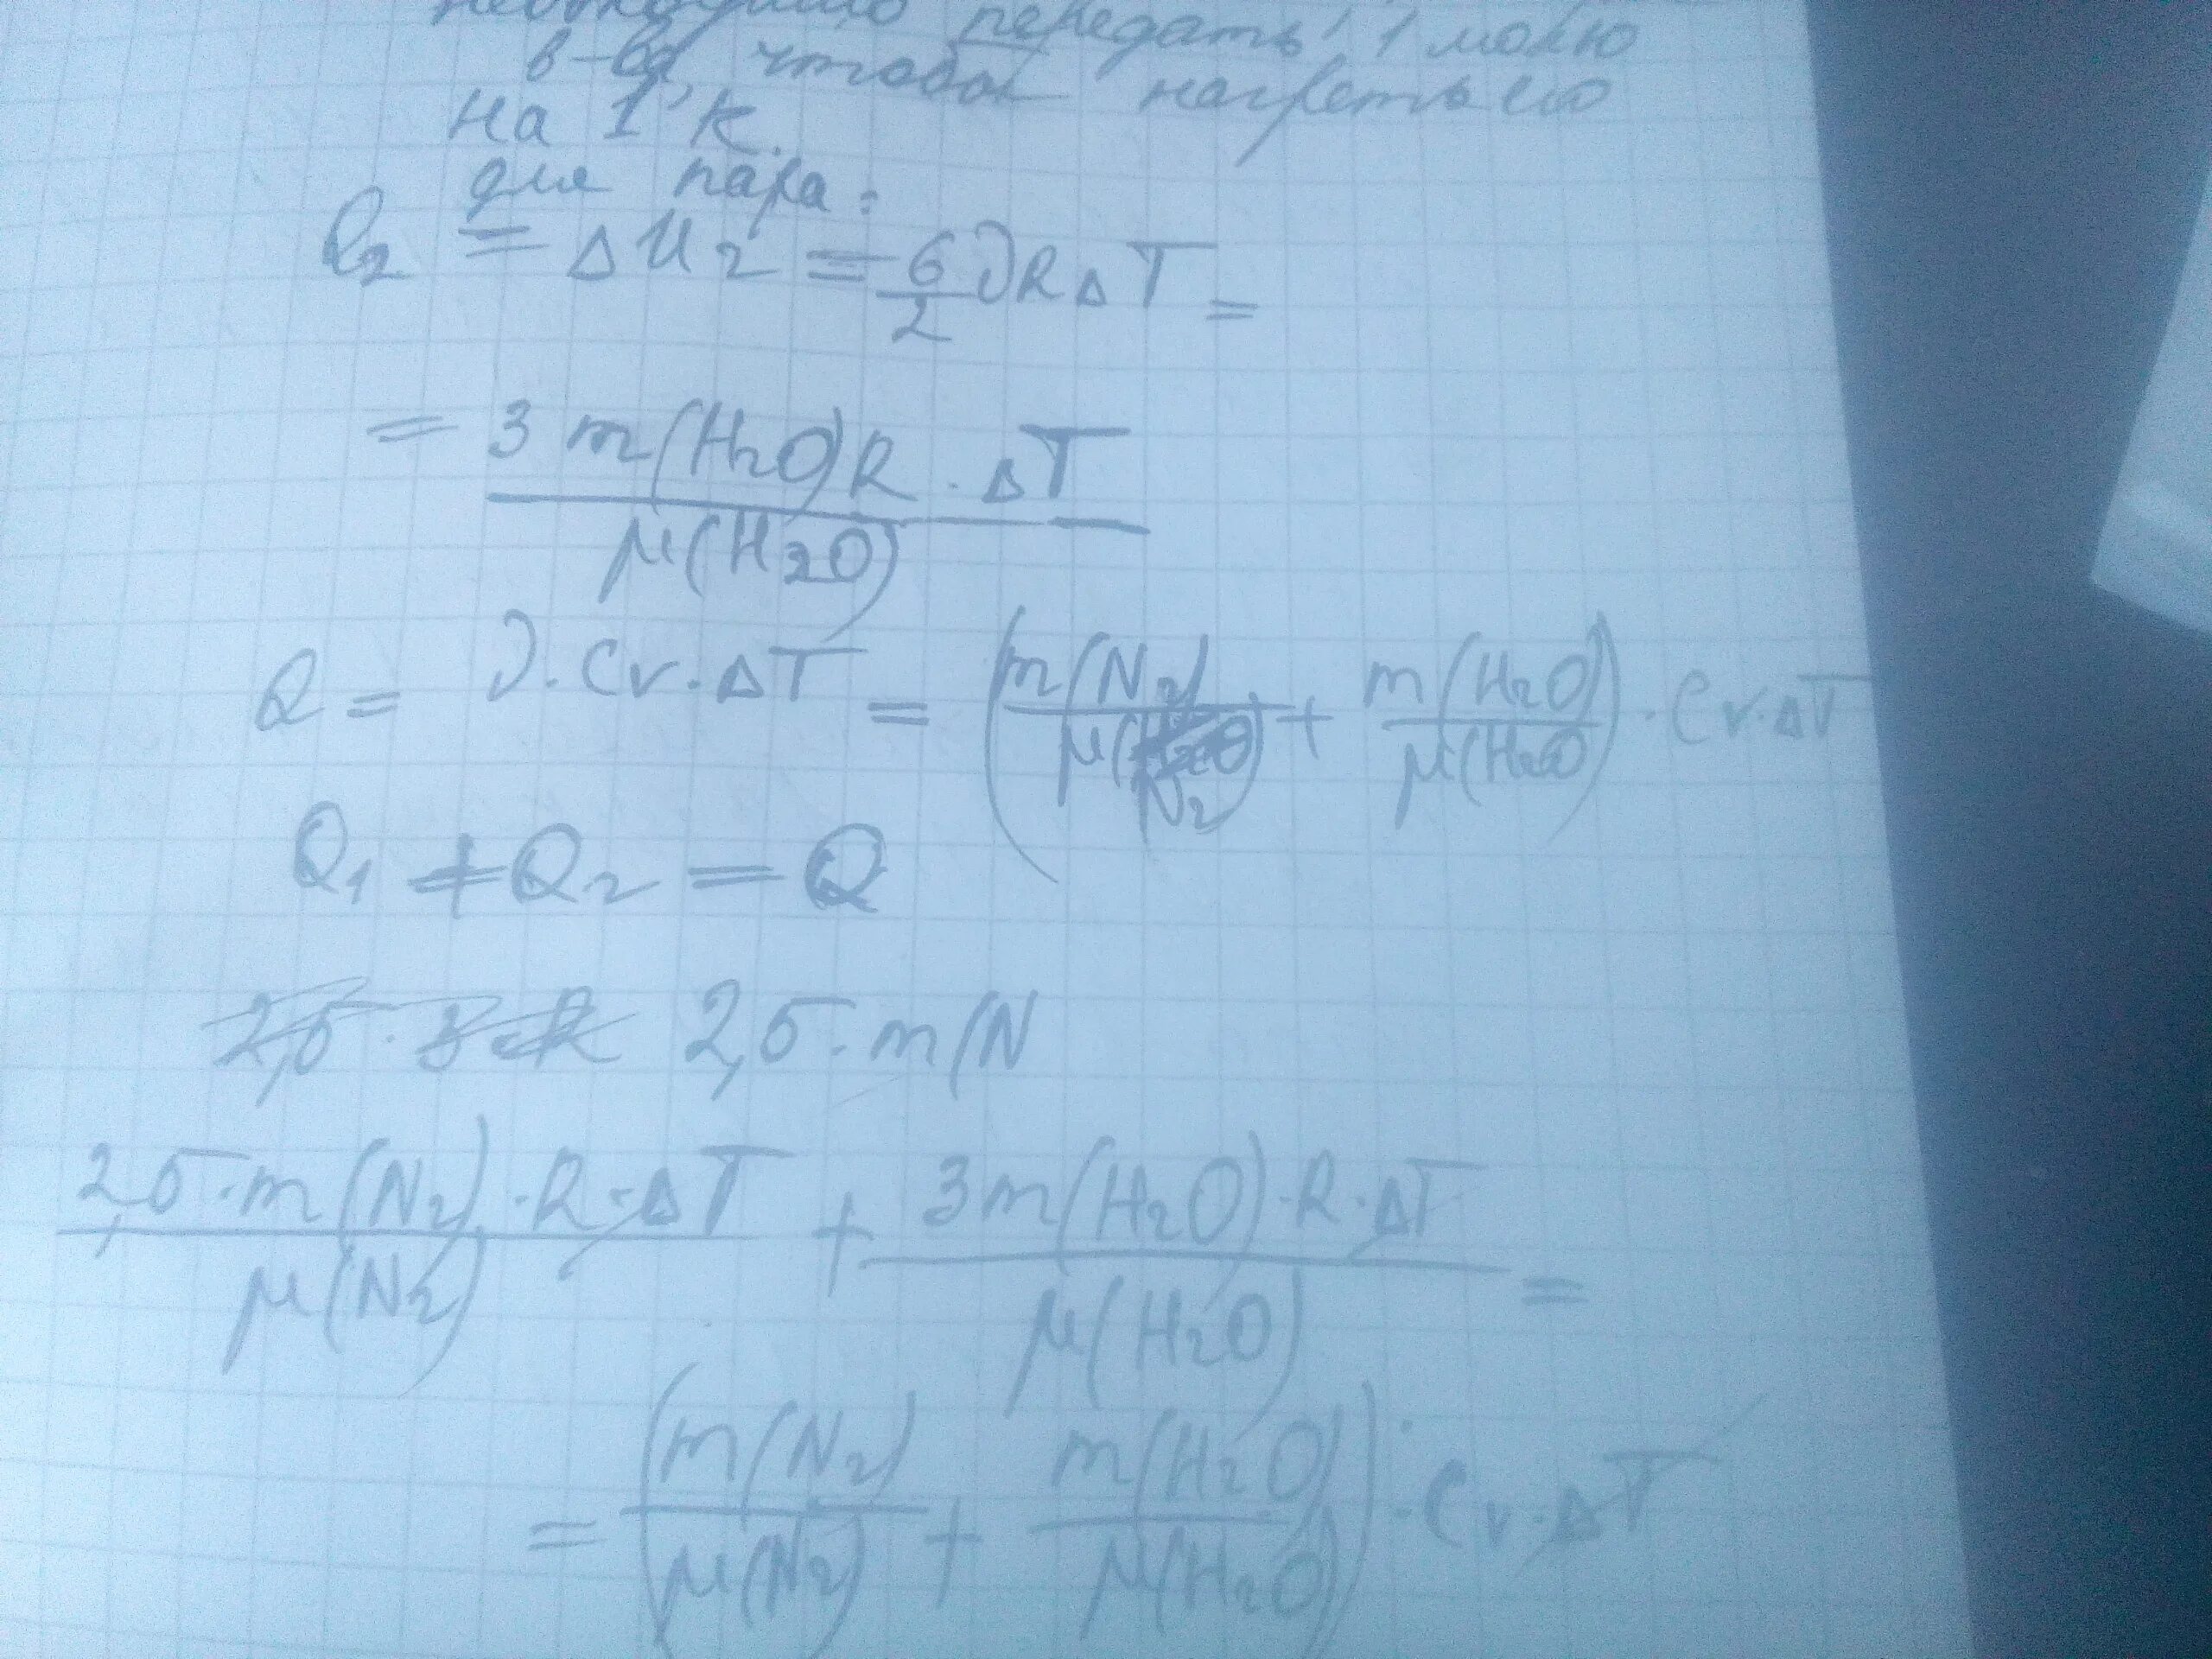 необходимо передать 1 молю
в-ва чтобы нагреть его
на 1 К.
для пара:
Q₂ = ΔU₂ = 6/2 νRΔT =
= 3 m(H₂O)R · ΔT / μ(H₂O)
Q = ν · Cv · ΔT = (m(N₂)/μ(N₂) + m(H₂O)/μ(H₂O)) · Cv · ΔT
Q₁ + Q₂ = Q
2,5 · m(N
2,5 · m(N₂) · R · ΔT / μ(N₂) + 3m(H₂O) · R · ΔT / μ(H₂O) =
= (m(N₂)/μ(N₂) + m(H₂O)/μ(H₂O)) · Cv · ΔT